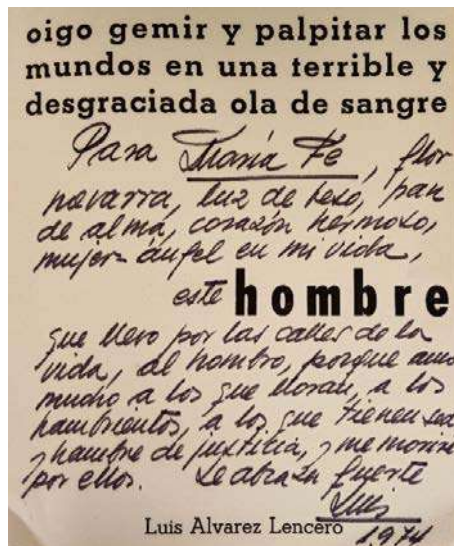 oigo gemir y palpitar los
mundos en una terrible y
desgraciada ola de sangre
Para María Fe, flor
navarra, luz de beso, pan
de alma, corazón hermoso,
mujer-ángel en mi vida,
este hombre
que llevo por las calles de la
vida, al hombro, porque amo
mucho a los que lloran, a los
hambrientos, a los que tienen sed
y hambre de justicia, y me moriré
por ellos. Le abraza fuerte
Luis
Luis Alvarez Lencero 1974